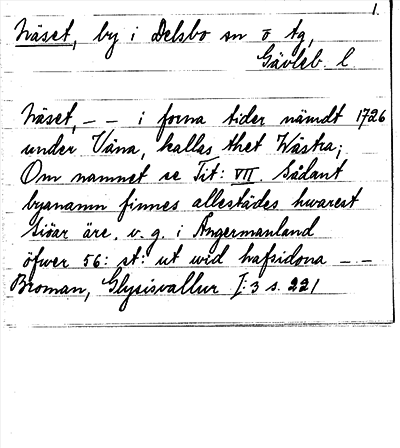 1.
Näset, by i Delsbo sn o tg,
Gävleb. l
Näset, – – i forna tider nämdt 1726
under Väna, kallas thet Wästra;
Om namnet se Tit: VII. Sådant
byanamn finnes allestädes hwarest
Siöar äre. v. g. i Ångermanland
öfwer 56: st: ut wid hafsidona – –
Broman, Glysisvallur I:3 s. 221